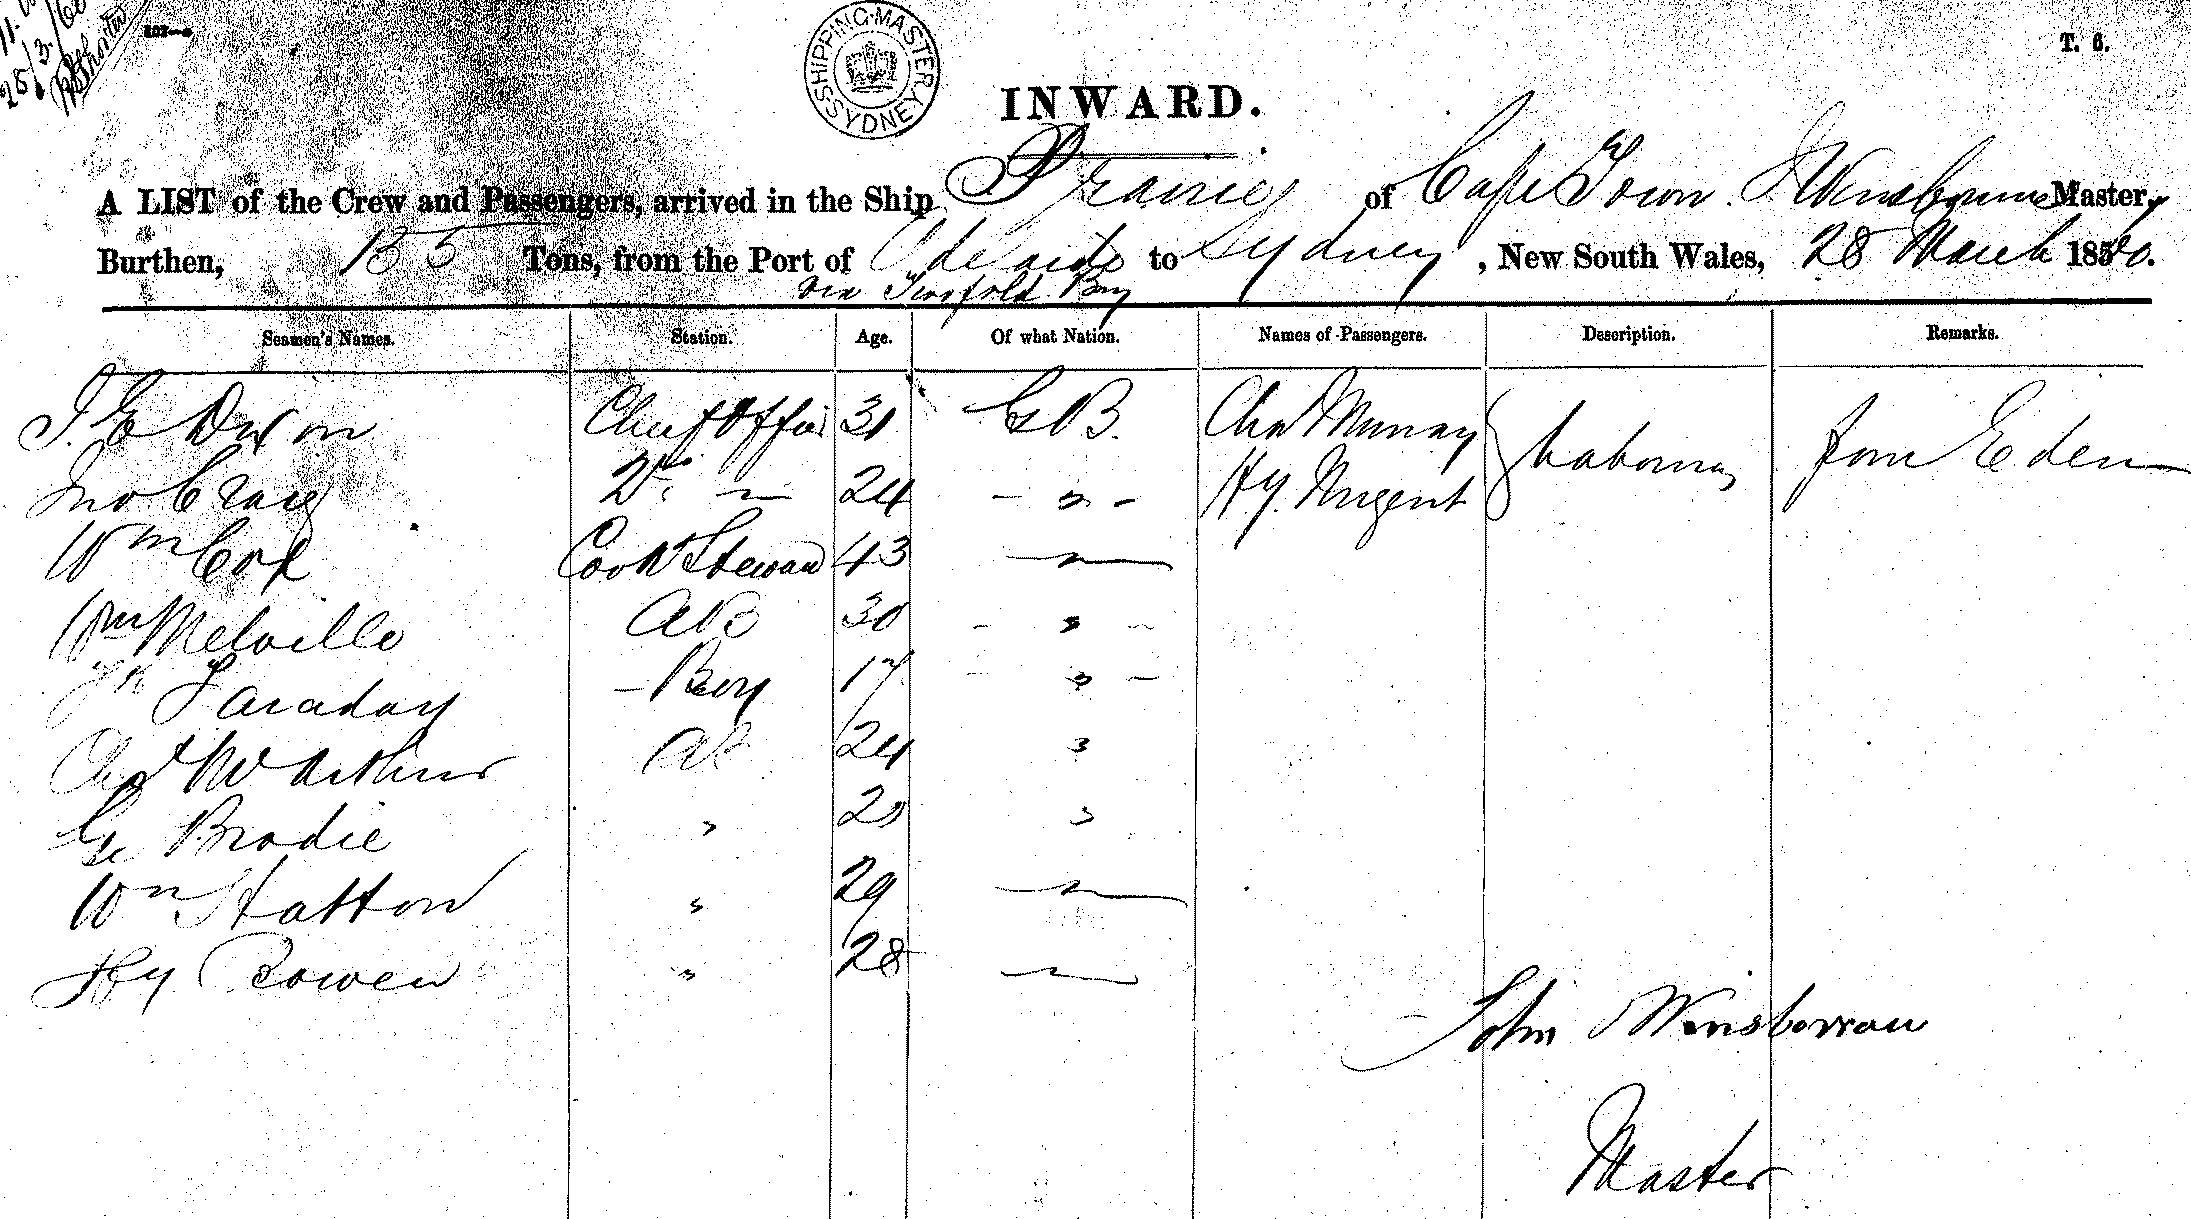 11.
28/3/60
SHIPPING·MASTER SYDNEY
T. 6.
INWARD.
A LIST of the Crew and Passengers, arrived in the Ship Prairie of Cape Town J Winsborrow Master,
Burthen, Tons, from the Port of Adelaide to Sydney, New South Wales, 28 March 1860.
via Twofold Bay
Seamen's Names. Station. Age. Of what Nation. Names of Passengers. Description. Remarks.
J. E Dixon Chief Offir 31 G B. Chas Murray Labourers from Eden
Jno Craig 2d " 24 " Hy. Nugent
Wm Cox Cook & Steward 43 "
Wm Melville AB 30 "
Faraday Boy 17 "
Chas McArthur AB 24 "
Ge Brodie " "
Wm Statton " 29 "
Hy Bowen " 28 "
John Winsborrow
Master